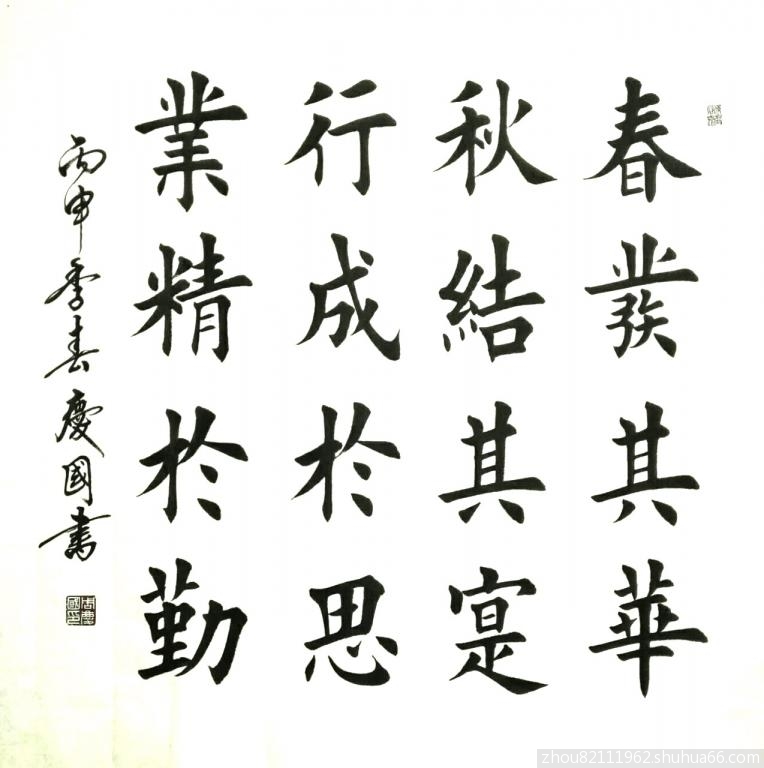 春發其華
秋結其寔
行成於思
業精於勤
丙申季春慶國書
周慶國印
zhou82111962.shuhua66.com